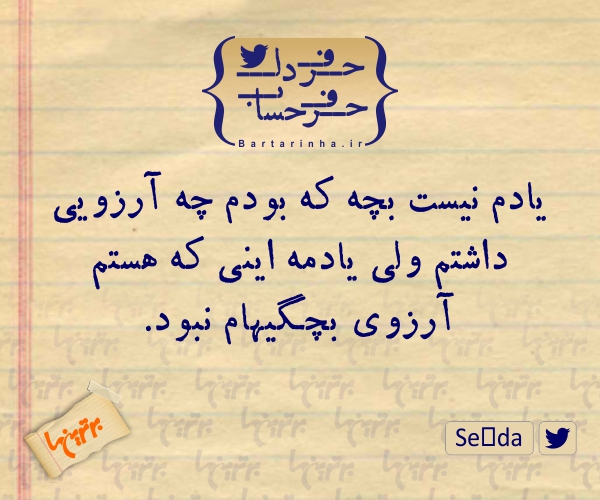 حرف دل
حرف حساب
Bartarinha.ir
یادم نیست بچه که بودم چه آرزویی
داشتم ولی یادمه اینی که هستم
آرزوی بچگیهام نبود.
برترین‌ها
Se▯da